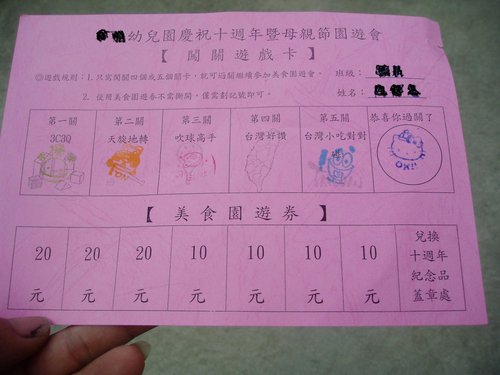 幼兒園慶祝十週年暨母親節園遊會
【 闖關遊戲卡 】
◎遊戲規則：1. 只需闖關四個或五個關卡，就可過關繼續參加美食園遊會。
班級：
2. 使用美食園遊券不需撕開，僅需劃記號即可。
姓名：
第一關 第二關 第三關 第四關 第五關 恭喜你過關了
3C3Q 天旋地轉 吹球高手 台灣好讚 台灣小吃對對
OK!!
【 美食園遊券 】
20元 20元 20元 10元 10元 10元 10元
兌換
十週年
紀念品
蓋章處